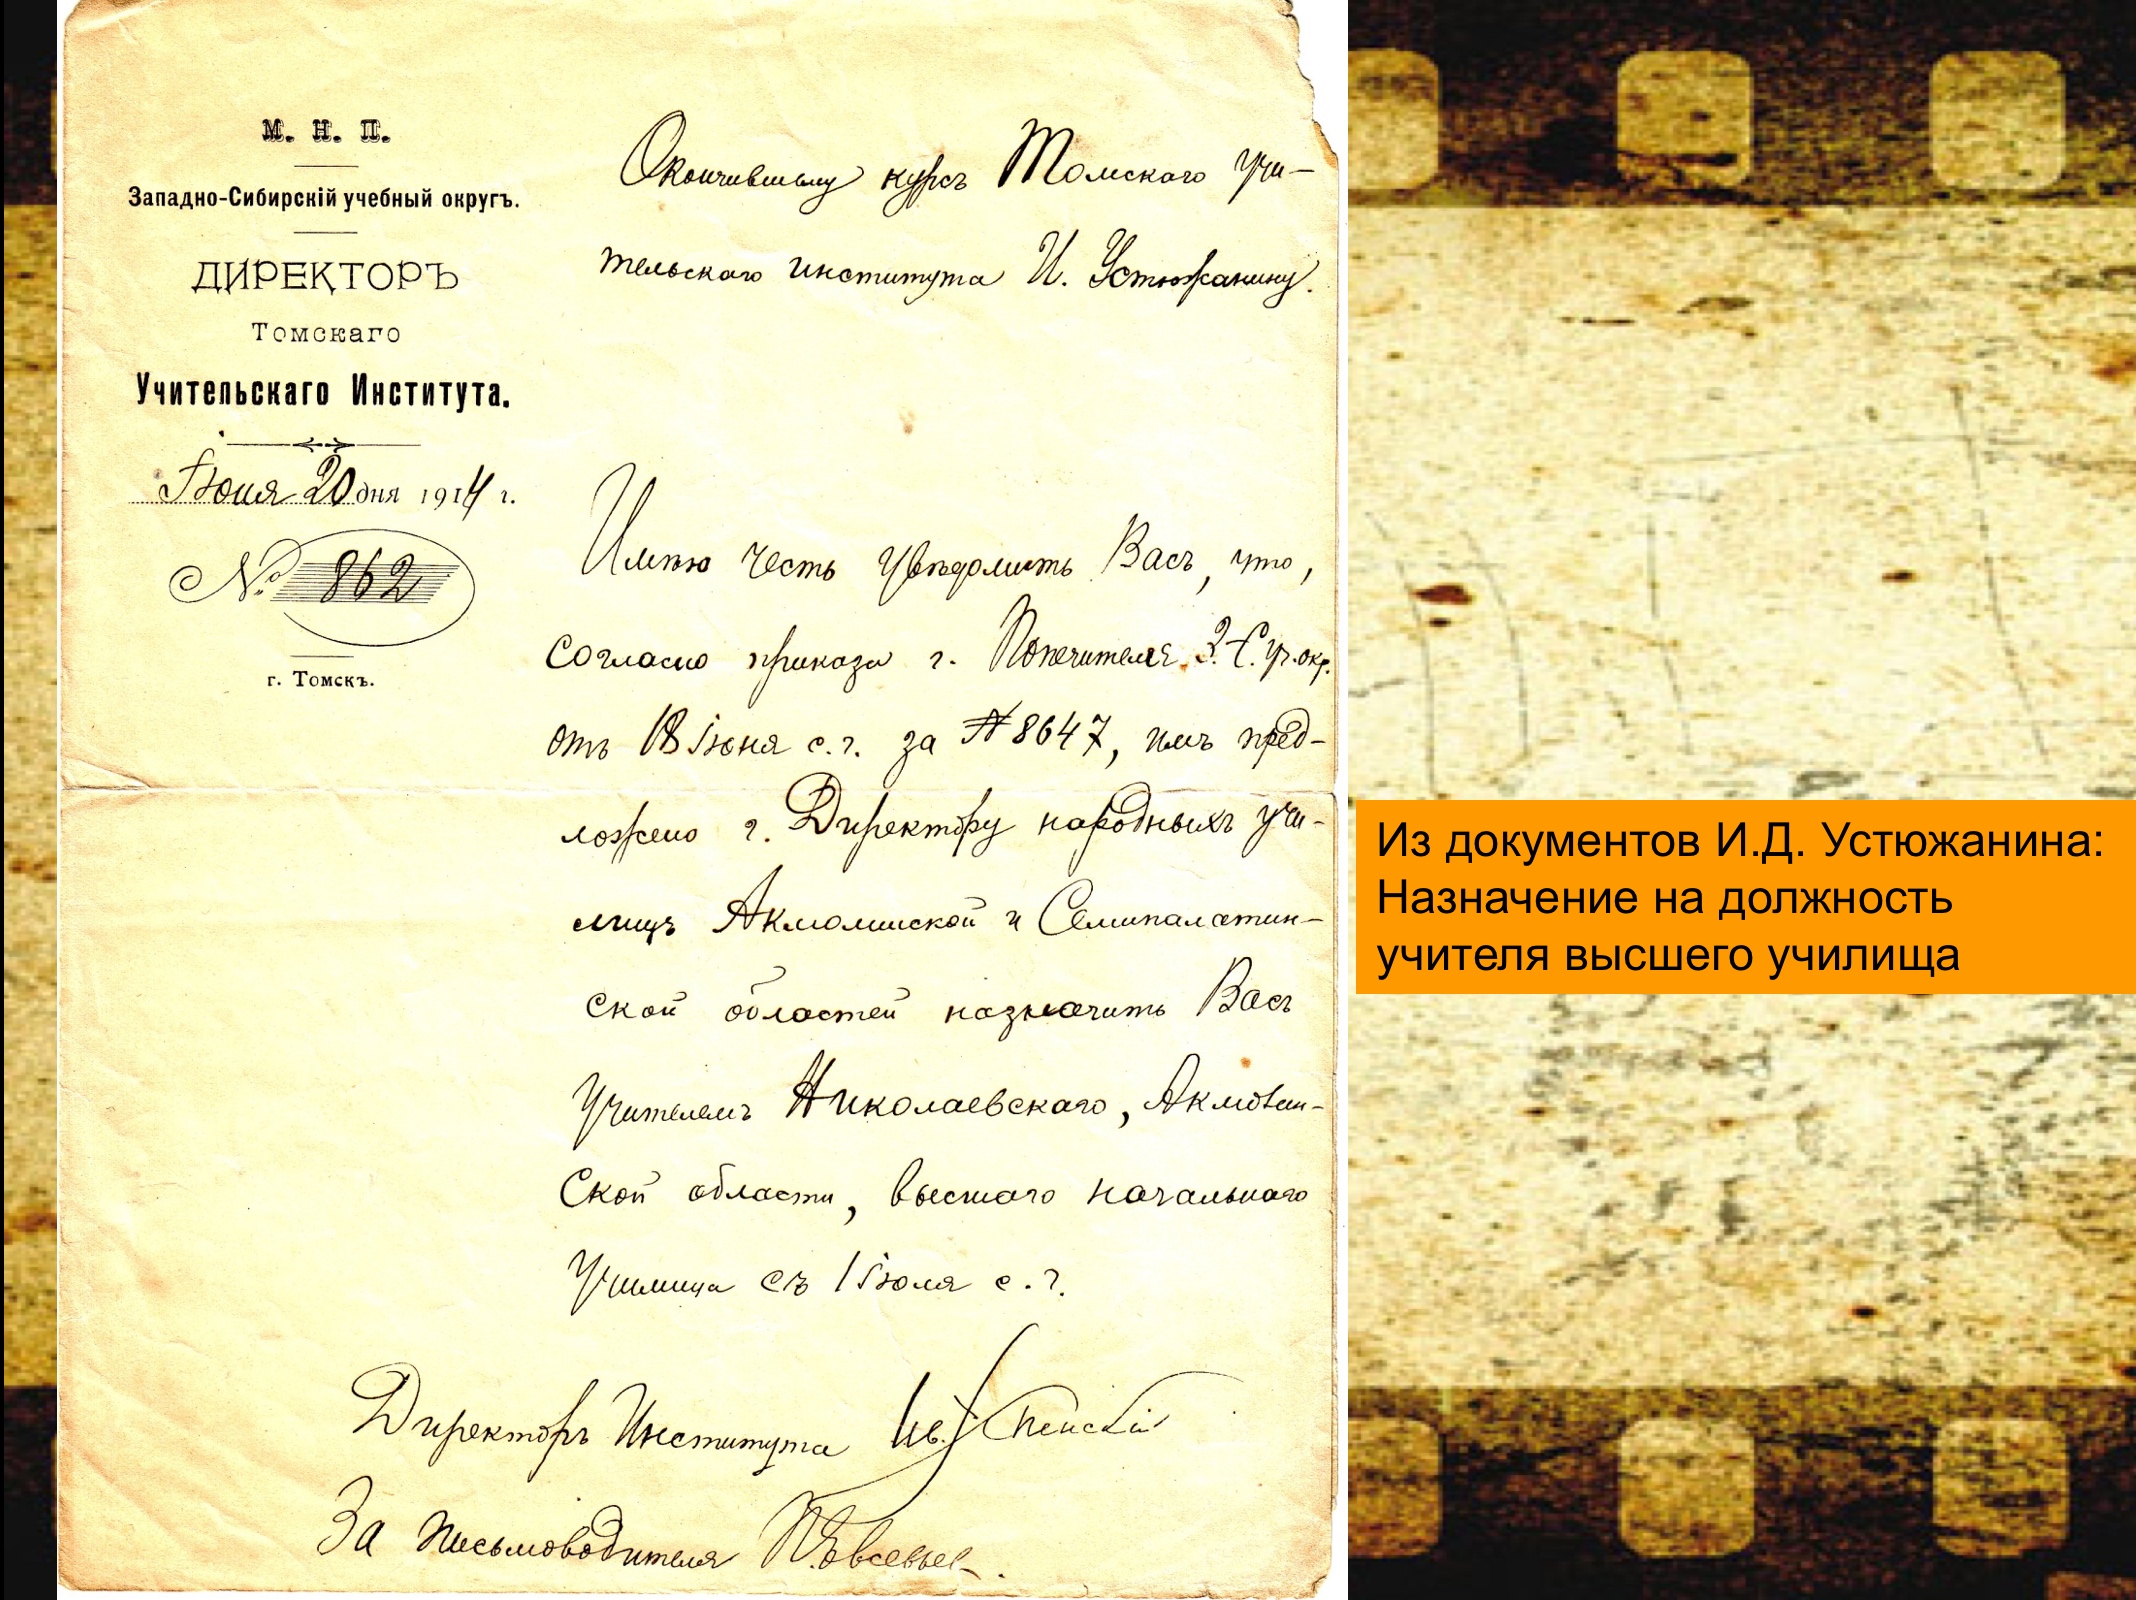 М. Н. П.
Западно-Сибирскій учебный округъ.
ДИРЕКТОРЪ
Томскаго
Учительскаго Института.
Іюня 20 дня 1914 г.
№ 862
г. Томскъ.
Окончившему курсъ Томскаго учи-
тельскаго института И. Устюжанину.
Имѣю честь увѣдомить Васъ, что,
согласно приказа г. Попечителя З.-С. уч. окр.
отъ 18 Іюня с. г. за № 8647, имъ пред-
ложено г. Директору народныхъ учи-
лищъ Акмолинской и Семипалатин-
ской областей назначить Васъ
учителемъ Николаевскаго, Акмолин-
ской области, высшаго начальнаго
училища съ 1 Іюля с. г.
Директоръ Института Ив. Успенскій
За письмоводителя
Из документов И.Д. Устюжанина:
Назначение на должность
учителя высшего училища